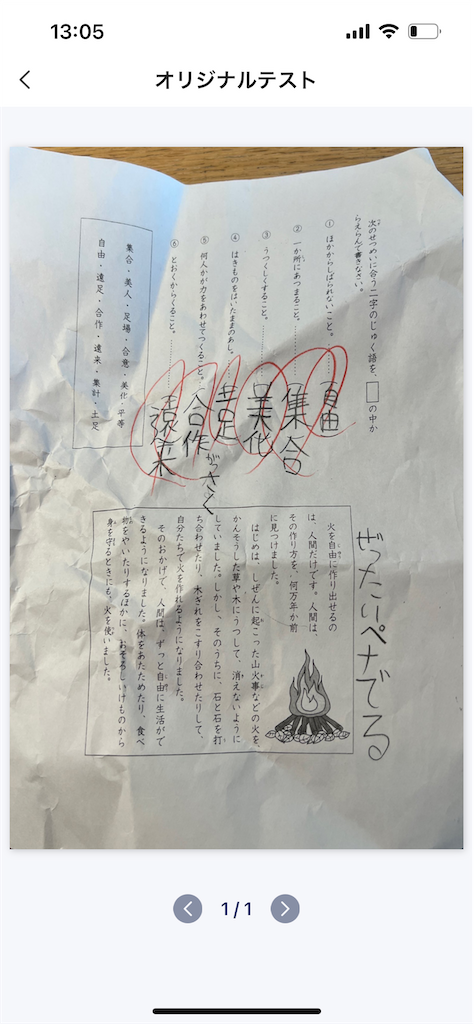 13:05
オリジナルテスト
次のせつめいに合う二字のじゅく語を、□の中か
らえらんで書きなさい。
① ほかからしばられないこと。………自由
② 一か所にあつまること。………集合
③ うつくしくすること。………美化
④ はきものをはいたままのあし。………土足
⑤ 何人かが力をあわせてつくること。合作
がっさく
⑥ とおくからくること。………遠来
集合・美人・足場・合意・美化・平等
自由・遠足・合作・遠来・集計・土足
ぜったいペナでる
火を自由に作り出せるの
は、人間だけです。人間は、
その作り方を、何万年か前
に見つけました。
はじめは、しぜんに起こった山火事などの火を、
かんそうした草や木にうつして、消えないように
していました。しかし、そのうちに、石と石を打
ち合わせたり、木ぎれをこすり合わせたりして、
自分たちで火を作れるようになりました。
そのおかげで、人間は、ずっと自由に生活がで
きるようになりました。体をあたためたり、食べ
物をやいたりするほかに、おそろしいけものから
身を守るときにも、火を使いました。
1/1